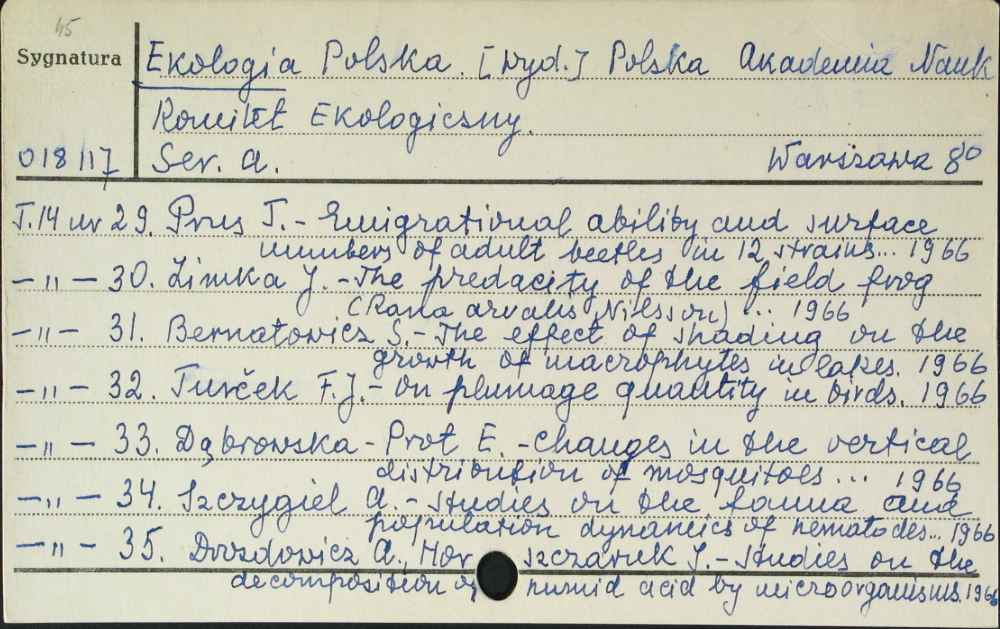 45
Sygnatura
Ekologia Polska. [Wyd.] Polska Akademia Nauk
Komitet Ekologiczny.
018/17 Ser. A. Warszawa 8°
T.14 nr 29. Prus T. - Emigrational ability and surface
numbers of adult beetles in 12 strains... 1966
-"- 30. Zimka J. - The predacity of the field frog
(Rana arvalis Nilsson) ... 1966
-"- 31. Bernatowicz S. - The effect of shading on the
growth of macrophytes in lakes. 1966
-"- 32. Turček F.J. - On plumage quantity in birds. 1966
-"- 33. Dąbrowska-Prot E. - Changes in the vertical
distribution of mosquitoes ... 1966
-"- 34. Szczygieł A. - Studies on the fauna and
population dynamics of nematodes... 1966
-"- 35. Drozdowicz A., Mor szczaruk J. - Studies on the
decomposition of humid acid by microorganisms. 1966